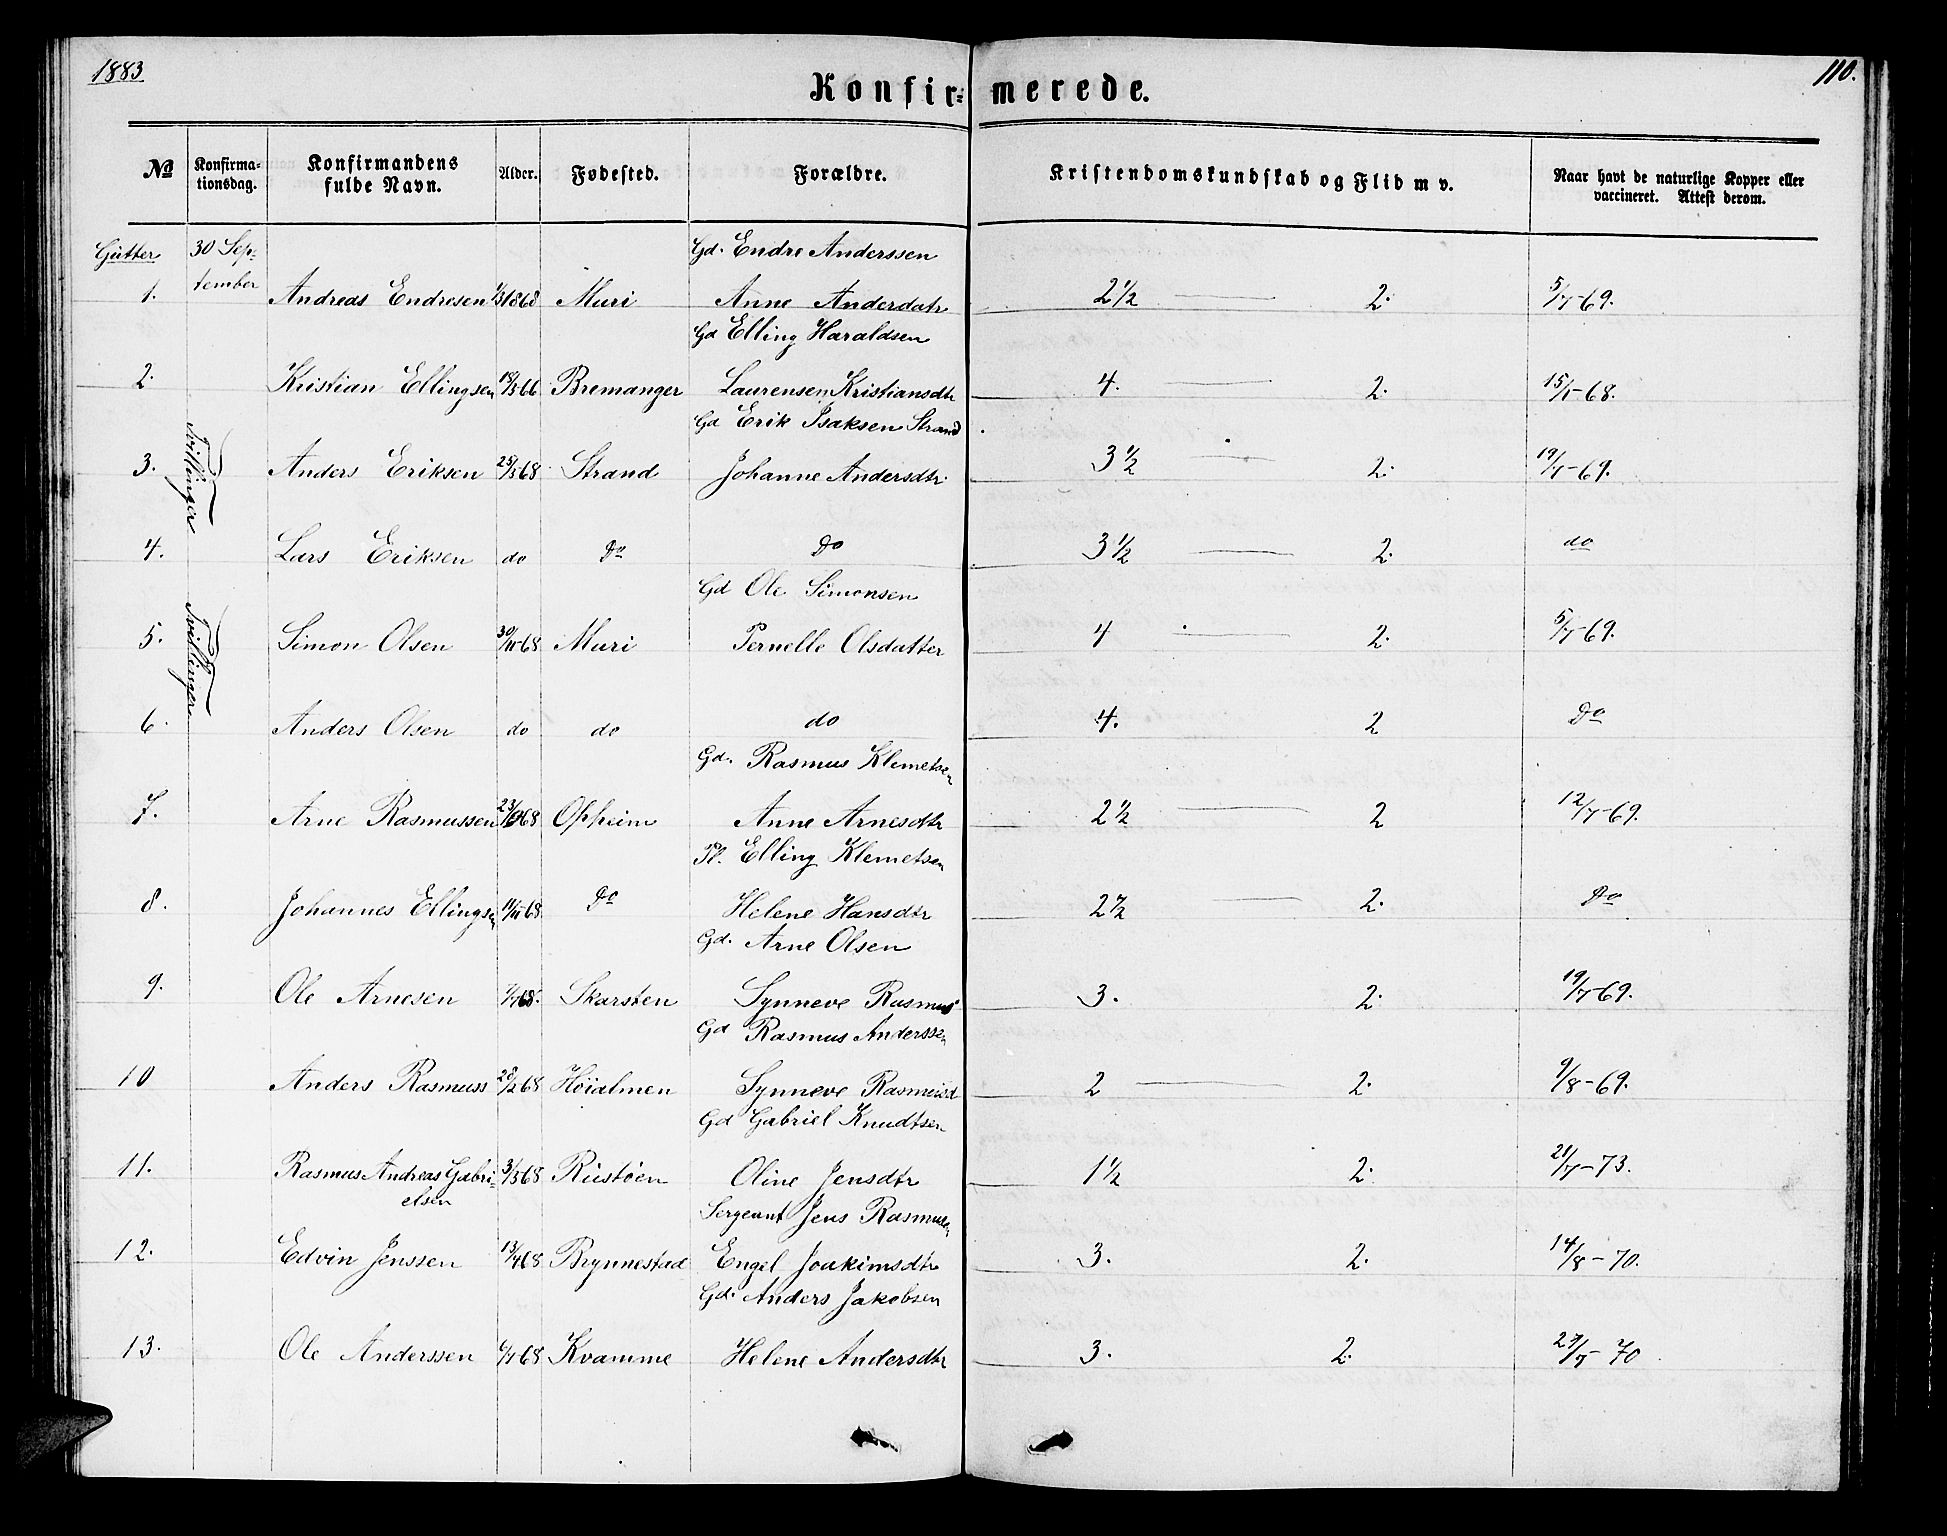 1883
110.
Konfir= merede.
No Konfirma=tionsdag. Konfirmandens fulde Navn. Alder. Fødested. Forældre. Kristendomskundskab og Flid m v. Naar havt de naturlige Kopper eller vaccineret. Attest derom.
Gutter 30 Sep= Gd. Endre Anderssen
tember
1. Andreas Endresen 1868 Muri Anne Andersdatr 2 1/2 2. 5/7-69.
Gd Elling Haraldsen
2. Kristian Ellingsen 18/5 66 Bremanger Laurensen Kristiansdtr 4. 2. 15/7-68.
Gd Erik Isaksen Strand
Tvillinger
3. Anders Eriksen 25/5 68 Strand Johanne Andersdtr. 3 1/2 2. 19/7-69.
4. Lars Eriksen do Do Do 3 1/2 2. do
Gd Ole Simonsen
Tvillinger
5. Simon Olsen 30/11 68 Muri Pernelle Olsdatter 4 2. 5/7-69.
6. Anders Olsen do do do 4. 2 Do
Gd. Rasmus Klemetsen
7. Arne Rasmussen 68 Opheim Anne Arnesdtr 2 1/2 2 12/7-69.
Pl. Elling Klemetsen
8. Johannes Ellingsen 14/11 68 Do Helene Hansdtr 2 1/2 2. Do
Gd. Arne Olsen
9. Ole Arnesen 68. Skarsten Synneve Rasmus 3. 2. 19/7-69.
Gd Rasmus Anderssen
10 Anders Rasmuss 28/2 68 Höialmen Synneve Rasmusd 2 2. 9/8-69.
Gd Gabriel Knudtsen
11. Rasmus Andreas Gabri= 3/5 68 Rustöen Oline Jensdtr 1 1/2 2. 21/7-73.
elsen
Sergeant Jens Rasmusen
12. Edvin Jenssen 13/4 68 Brynnestad Engel Joakimsdtr 3. 2. 14/8-70.
Gd. Anders Jakobsen
13. Ole Anderssen 6/7 68 Kvamme Helene Andersdtr 3. 2. 23/7-70